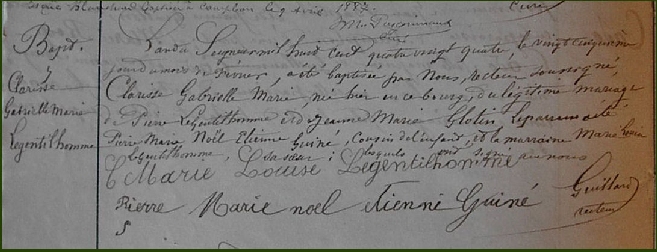 1884.
Curé
Bapt.
Clarisse
Gabrielle Marie
Legentilhomme
L'an du Seigneur mil huit cent quatre vingt quatre, le vingt cinquième
jour du mois de Février, a été baptisée par Nous, recteur soussigné,
Clarisse Gabrielle Marie, née hier en ce bourg, du légitime mariage
de Pierre Legentilhomme et de Jeanne Marie Glotin. Le parrain a été
Pierre Marie Noël Etienne Guiné, cousin de l'enfant, et la marraine Marie Louise
Legentilhomme, sa sœur; lesquels ont signé
Marie Louise Legentilhomme
Pierre Marie noel etienne Guiné
Guillard
recteur